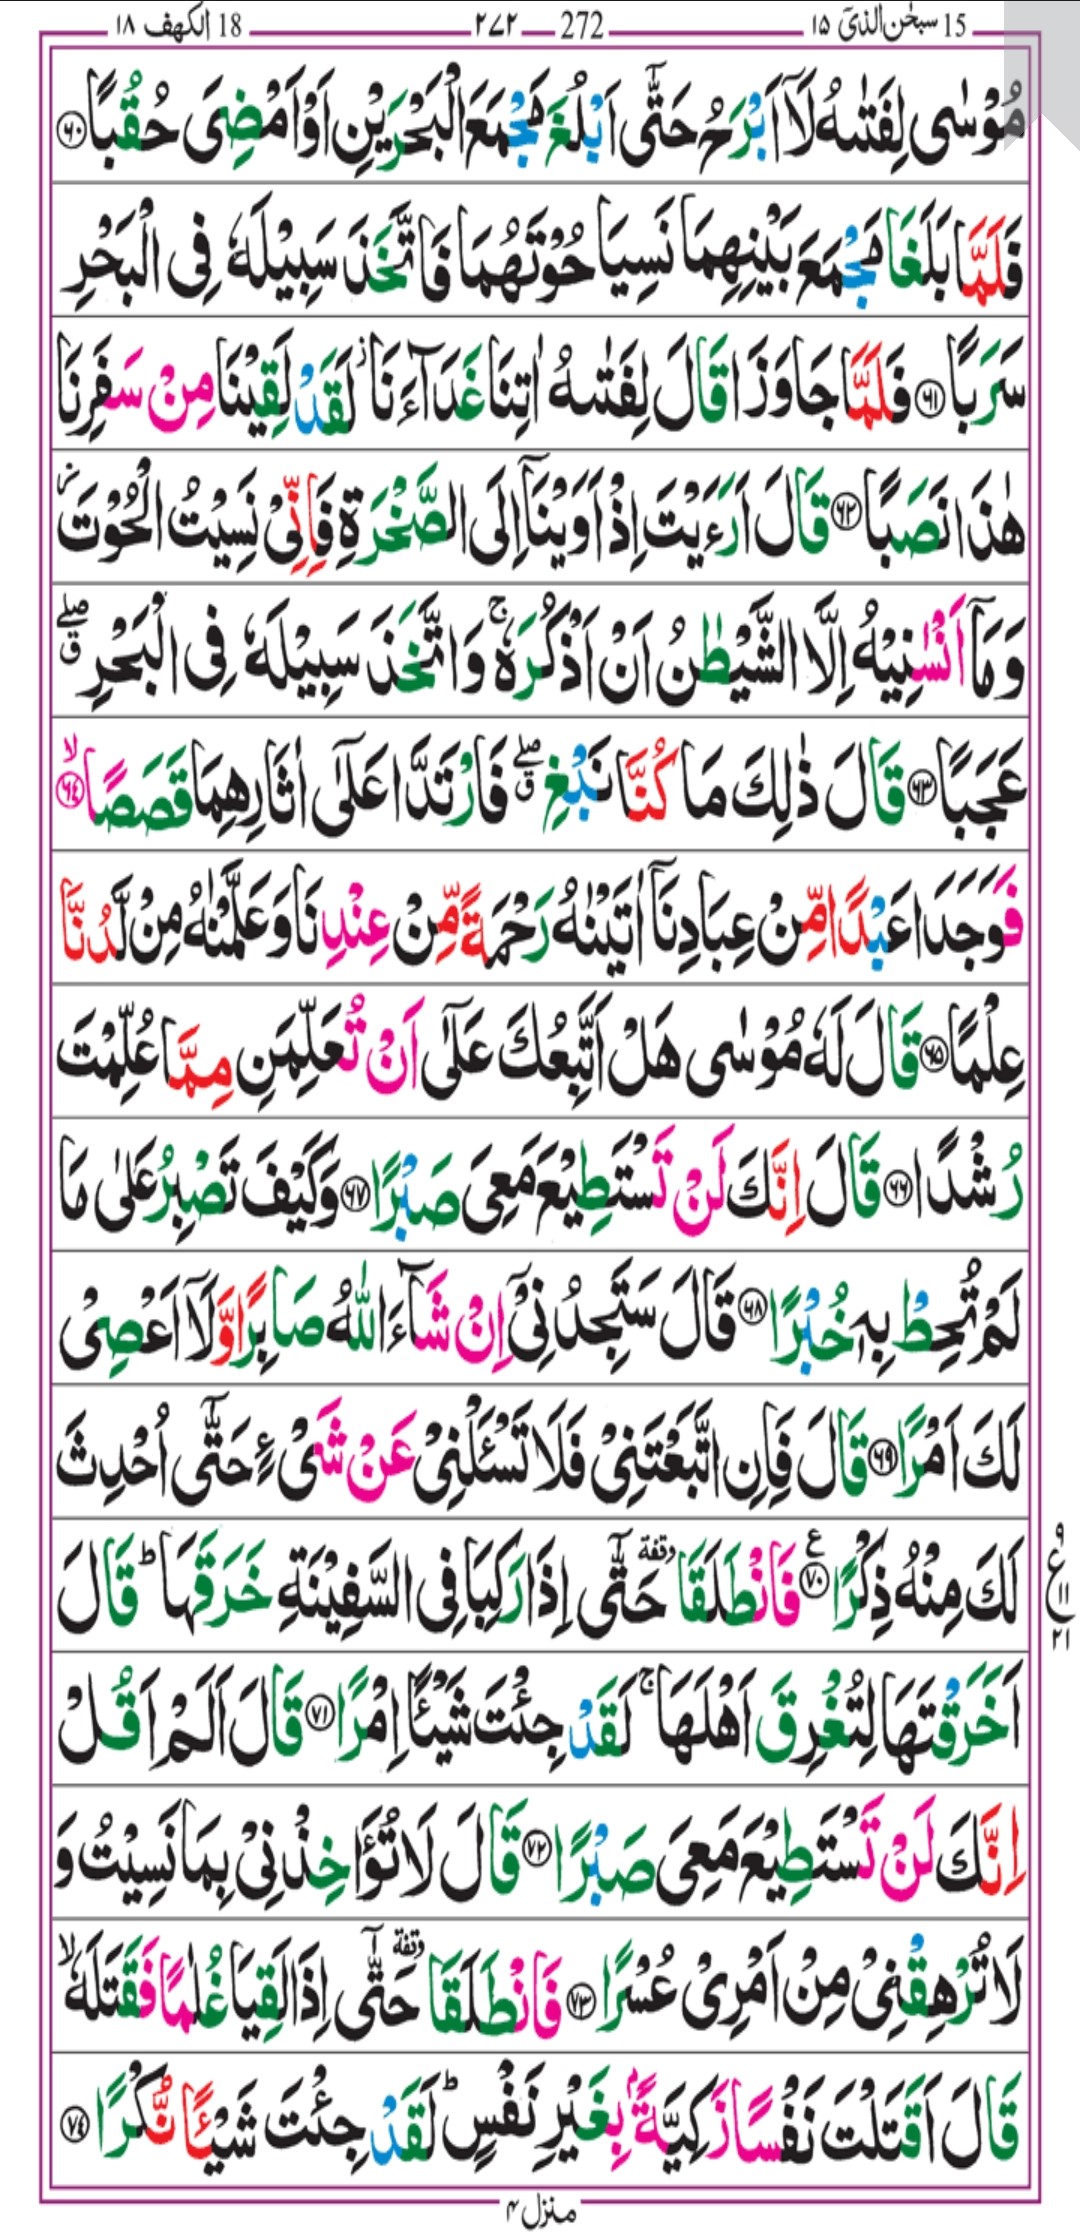 15 سبحٰن الذیٓ ۱۵ — 272 — ۲۷۲ — 18 الکھف ۱۸
مُوْسٰى لِفَتٰىهُ لَاۤ اَبْرَحُ حَتّٰۤى اَبْلُغَ مَجْمَعَ الْبَحْرَيْنِ اَوْ اَمْضِىَ حُقُبًا ﴿۶۰﴾
فَلَمَّا بَلَغَا مَجْمَعَ بَيْنِهِمَا نَسِيَا حُوْتَهُمَا فَاتَّخَذَ سَبِيْلَهٗ فِى الْبَحْرِ
سَرَبًا ﴿۶۱﴾ فَلَمَّا جَاوَزَا قَالَ لِفَتٰىهُ اٰتِنَا غَدَآءَنَا ز لَقَدْ لَقِيْنَا مِنْ سَفَرِنَا
هٰذَا نَصَبًا ﴿۶۲﴾ قَالَ اَرَءَيْتَ اِذْ اَوَيْنَاۤ اِلَى الصَّخْرَةِ فَاِنِّىْ نَسِيْتُ الْحُوْتَ ز
وَمَاۤ اَنْسٰنِيْهُ اِلَّا الشَّيْطٰنُ اَنْ اَذْكُرَهٗ ۚ وَاتَّخَذَ سَبِيْلَهٗ فِى الْبَحْرِ ۖ ق
عَجَبًا ﴿۶۳﴾ قَالَ ذٰلِكَ مَا كُنَّا نَبْغِ ۖ ق فَارْتَدَّا عَلٰٓى اٰثَارِهِمَا قَصَصًا ۙ ﴿۶۴﴾
فَوَجَدَا عَبْدًا مِّنْ عِبَادِنَاۤ اٰتَيْنٰهُ رَحْمَةً مِّنْ عِنْدِنَا وَعَلَّمْنٰهُ مِنْ لَّدُنَّا
عِلْمًا ﴿۶۵﴾ قَالَ لَهٗ مُوْسٰى هَلْ اَتَّبِعُكَ عَلٰٓى اَنْ تُعَلِّمَنِ مِمَّا عُلِّمْتَ
رُشْدًا ﴿۶۶﴾ قَالَ اِنَّكَ لَنْ تَسْتَطِيْعَ مَعِىَ صَبْرًا ﴿۶۷﴾ وَكَيْفَ تَصْبِرُ عَلٰى مَا
لَمْ تُحِطْ بِهٖ خُبْرًا ﴿۶۸﴾ قَالَ سَتَجِدُنِىْۤ اِنْ شَآءَ اللّٰهُ صَابِرًا وَّلَاۤ اَعْصِىْ
لَكَ اَمْرًا ﴿۶۹﴾ قَالَ فَاِنِ اتَّبَعْتَنِىْ فَلَا تَسْـَٔلْنِىْ عَنْ شَىْءٍ حَتّٰۤى اُحْدِثَ
لَكَ مِنْهُ ذِكْرًا ﴿۷۰﴾ ع فَانْطَلَقَا وقفة حَتّٰۤى اِذَا رَكِبَا فِى السَّفِيْنَةِ خَرَقَهَا ؕ قَالَ
۹ ع ۱۱ ۲۱
اَخَرَقْتَهَا لِتُغْرِقَ اَهْلَهَا ۚ لَقَدْ جِئْتَ شَيْـًٔا اِمْرًا ﴿۷۱﴾ قَالَ اَلَمْ اَقُلْ
اِنَّكَ لَنْ تَسْتَطِيْعَ مَعِىَ صَبْرًا ﴿۷۲﴾ قَالَ لَا تُؤَاخِذْنِىْ بِمَا نَسِيْتُ وَ
لَا تُرْهِقْنِىْ مِنْ اَمْرِىْ عُسْرًا ﴿۷۳﴾ فَانْطَلَقَا وقفة حَتّٰۤى اِذَا لَقِيَا غُلٰمًا فَقَتَلَهٗ ۙ
قَالَ اَقَتَلْتَ نَفْسًا زَكِيَّةًۢ بِغَيْرِ نَفْسٍ ؕ لَقَدْ جِئْتَ شَيْـًٔا نُّكْرًا ﴿۷۴﴾
منزل ۴